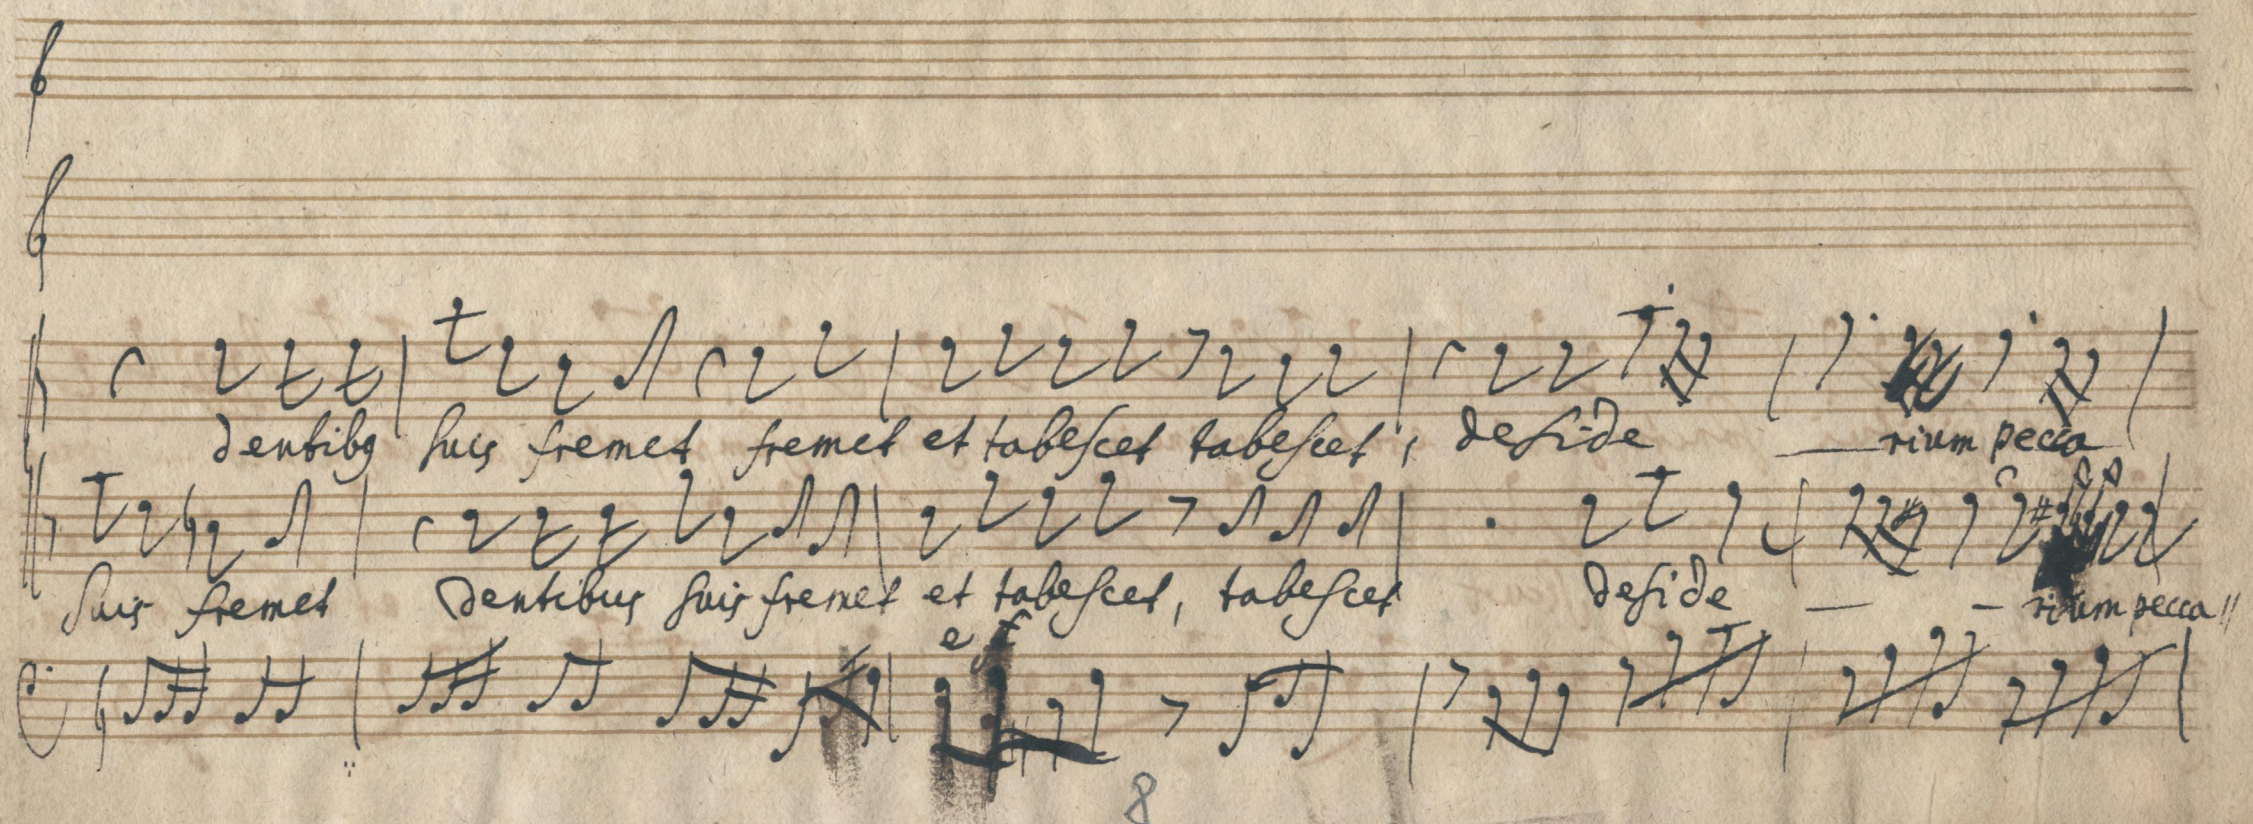 dentibꝯ suis fremet fremet et tabescet tabescet, deside — rium pecca
suis fremet dentibus suis fremet et tabescet, tabescet deside — — rium pecca //
e f
8